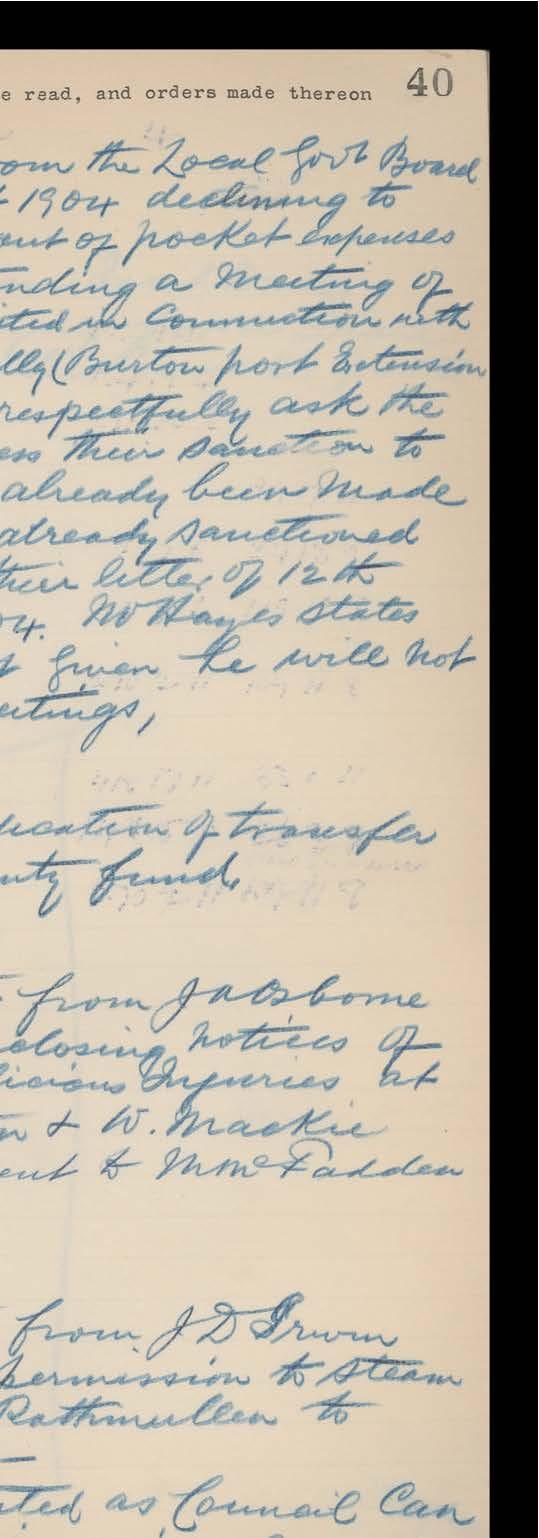 e read, and orders made thereon 40
om the Local Govt Board
1904 declining to
out of pocket expenses
nding a Meeting of
ited in Connection with
lly (Burton port Extension
respectfully ask the
ess their sanction to
already been made
already sanctioned
their letter of 12th
04. Mr Hayes states
t given he will not
eetings,
lication of transfer
nty fund,
from J A Osborne
closing notices of
licious Injuries at
n & W. Mackie
ent to M McFadden
from J D Irwin
permission to steam
Rathmullen to
ted as Council Can